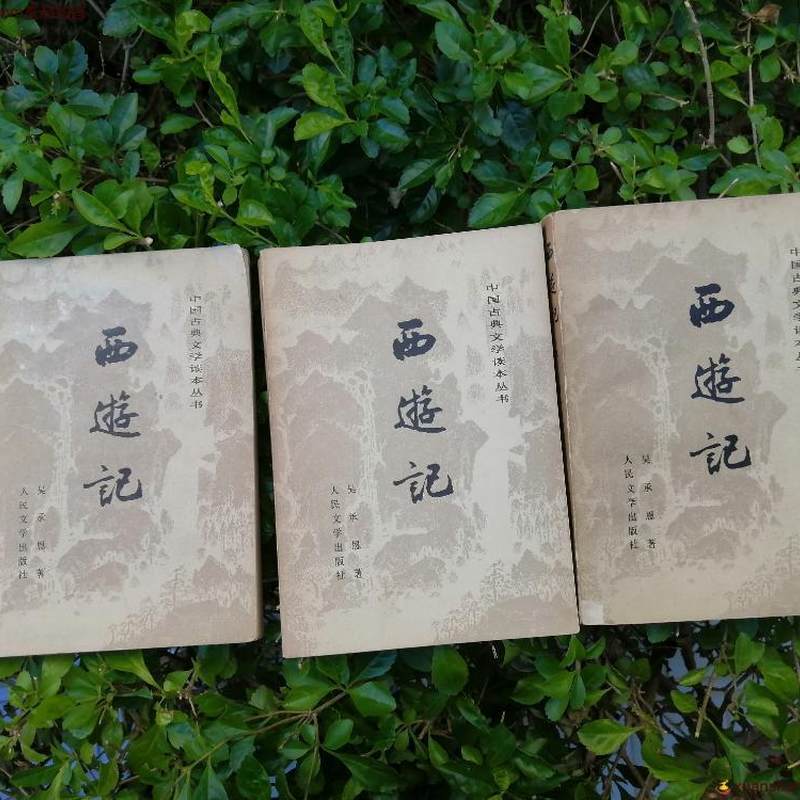 中国古典文学读本丛书
西遊記
吴承恩著
人民文学出版社
中国古典文学读本丛书
西遊記
吴承恩著
人民文学出版社
西遊記
中国古典文学读本丛
西遊記
吴承恩著
人民文学出版社